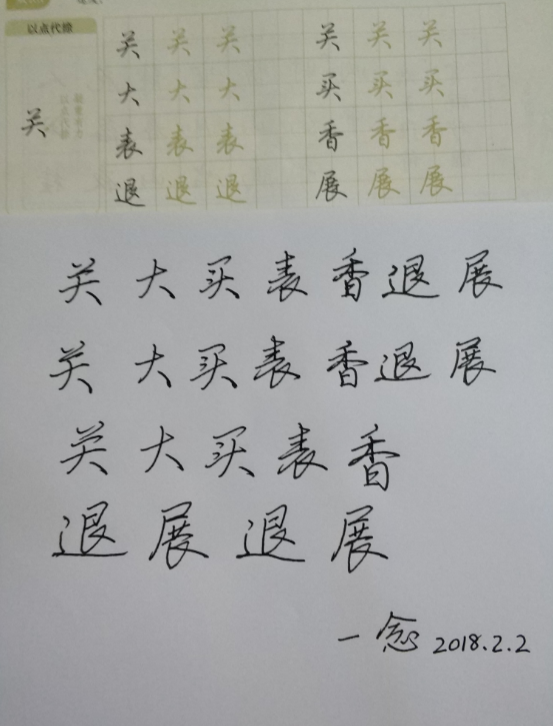 以点代捺
关 关 关 关 关 关
关 大 大 大 买 买 买
表 表 表 香 香 香
退 退 退 展 展 展
关 大 买 表 香 退 展
关 大 买 表 香 退 展
关 大 买 表 香
退 展 退 展
一念 2018.2.2